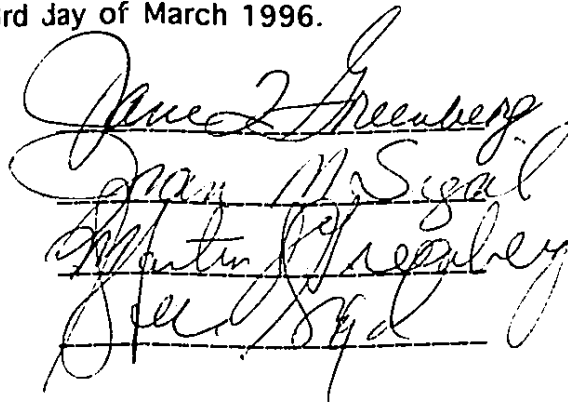 rd day of March 1996.
Jane Z Greenberg
Joan M. Sigal
Martin J Greenberg
Sigal